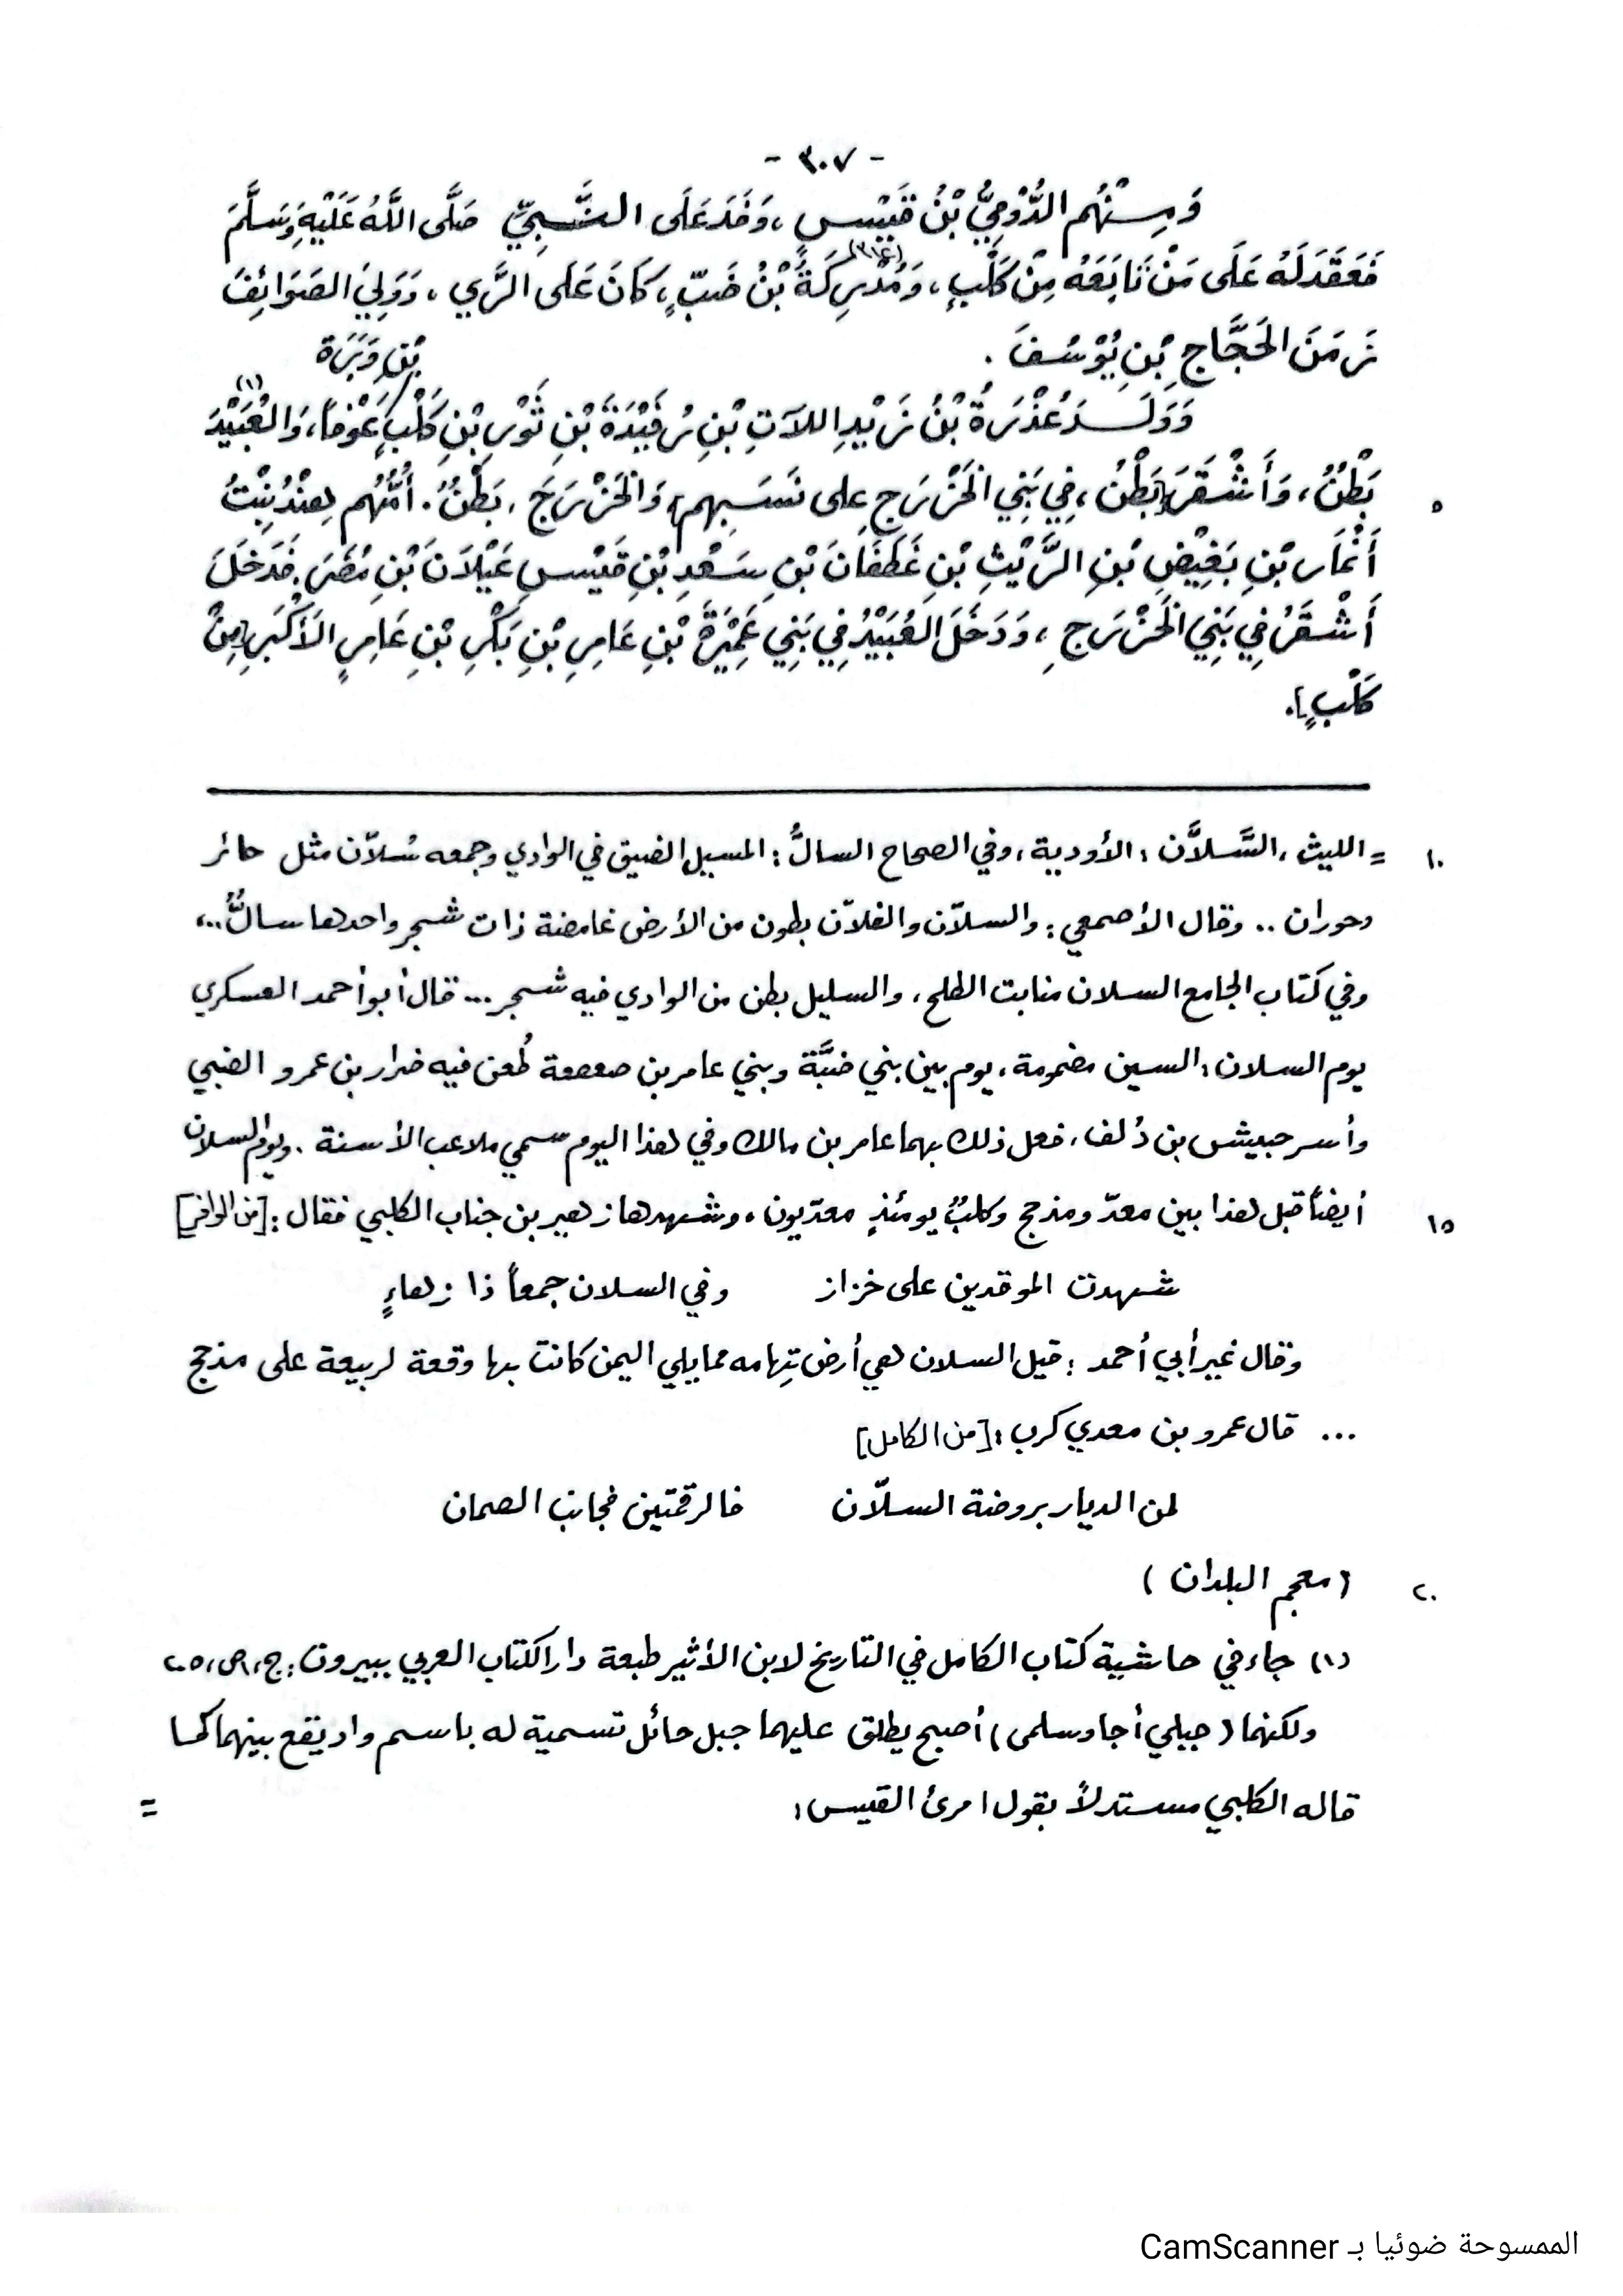 - ٣٠٧ -
وَمِنْهُم الدُّوْمِيُّ بْنُ قَيْسٍ ، وَفَدَ عَلَى النَّبِيِّ صَلَّى اللَّهُ عَلَيْهِ وَسَلَّمَ
(٣١٤)
فَعَقَدَ لَهُ عَلَى مَنْ تَابَعَهُ مِنْ كَلْبٍ ، وَمُدْرِكَةُ بْنُ ضَبٍّ ، كَانَ عَلَى الرَّي ، وَوَلِيَ الصَوَائِفَ
زَمَنَ الحَجَّاجِ بْنِ يُوْسُفَ .
بْنِ وَبَرَةَ
وَوَلَدَ عُذْرَةُ بْنُ زَيْدِ اللاَّتِ بْنِ رُفَيْدَةَ بْنِ ثَوْرِ بْنِ كَلْبٍ عَوْفاً ، وَالعُبَيْدَ (١)
٥ بَطْنٌ ، وَأَشْقَرَ [بَطْنٌ ، فِي بَنِي الخَزْرَجِ على نَسَبِهِم] وَالخَزْرَجَ ، بَطْنٌ . أُمُّهُم هِنْدُ بِنْتُ
أَنْمَارِ بْنِ بَغِيْضِ بْنِ الرَّيْثِ بْنِ غَطَفَانَ بْنِ سَعْدِ بْنِ قَيْسِ عَيْلاَنَ بْنِ مُضَرَ . فَدَخَلَ
أَشْقَرُ فِي بَنِي الخَزْرَجِ ، وَدَخَلَ العُبَيْدُ فِي بَنِي عَمِيْرَةَ بْنِ عَامِرِ بْنِ بَكْرِ بْنِ عَامِرٍ الأَكْبَرِ [مِنْ
كَلْبٍ].
١٠ = الليث ، السَّلاَّن : الأودية ، وفي الصحاح السالُّ : المسيل الضيق في الوادي وجمعه سُلاّن مثل حائر
وحوران .. وقال الأصمعي : والسلاّن والغلاّن بطون من الأرض غامضة ذات شجر واحدها سالٌّ ..،
وفي كتاب الجامع السلان منابت الطلح ، والسليل بطن من الوادي فيه شجر ... قال أبو أحمد العسكري
يوم السلان : السين مضمومة ، يوم بين بني ضبَّة وبني عامر بن صعصعة طُعن فيه ضرار بن عمرو الضبي
وأسر حبيش بن دُلف ، فعل ذلك بهما عامر بن مالك وفي هذا اليوم سمي ملاعب الأسنة . ويوم السلان
١٥ أيضاً قبل هذا بين معدّ ومذحج وكلبٌ يومئذٍ معدّيون ، وشهدها زهير بن جناب الكلبي فقال : [من الوافر]
شهدت الموقدين على خزاز وفي السلان جمعاً ذا زهاءٍ
وقال غير أبي أحمد : قيل السلان هي أرض تِهامه مما يلي اليمن كانت بها وقعة لربيعة على مذحج
... قال عمرو بن معدي كرب : [من الكامل]
لمن الديار بروضة السلاّن فالرقمتين فجانب الصمان
٢٠ (معجم البلدان )
(١) جاء في حاشية كتاب الكامل في التاريخ لابن الأثير طبعة دار الكتاب العربي ببيروت : ج ١، ص ، ٢٠٥
ولكنهما ( جبلي أجا وسلمى ) أصبح يطلق عليهما جبل حائل تسمية له باسم واد يقع بينهما كما
قاله الكلبي مستدلاً بقول امرئ القيس :
=
الممسوحة ضوئيا بـ CamScanner